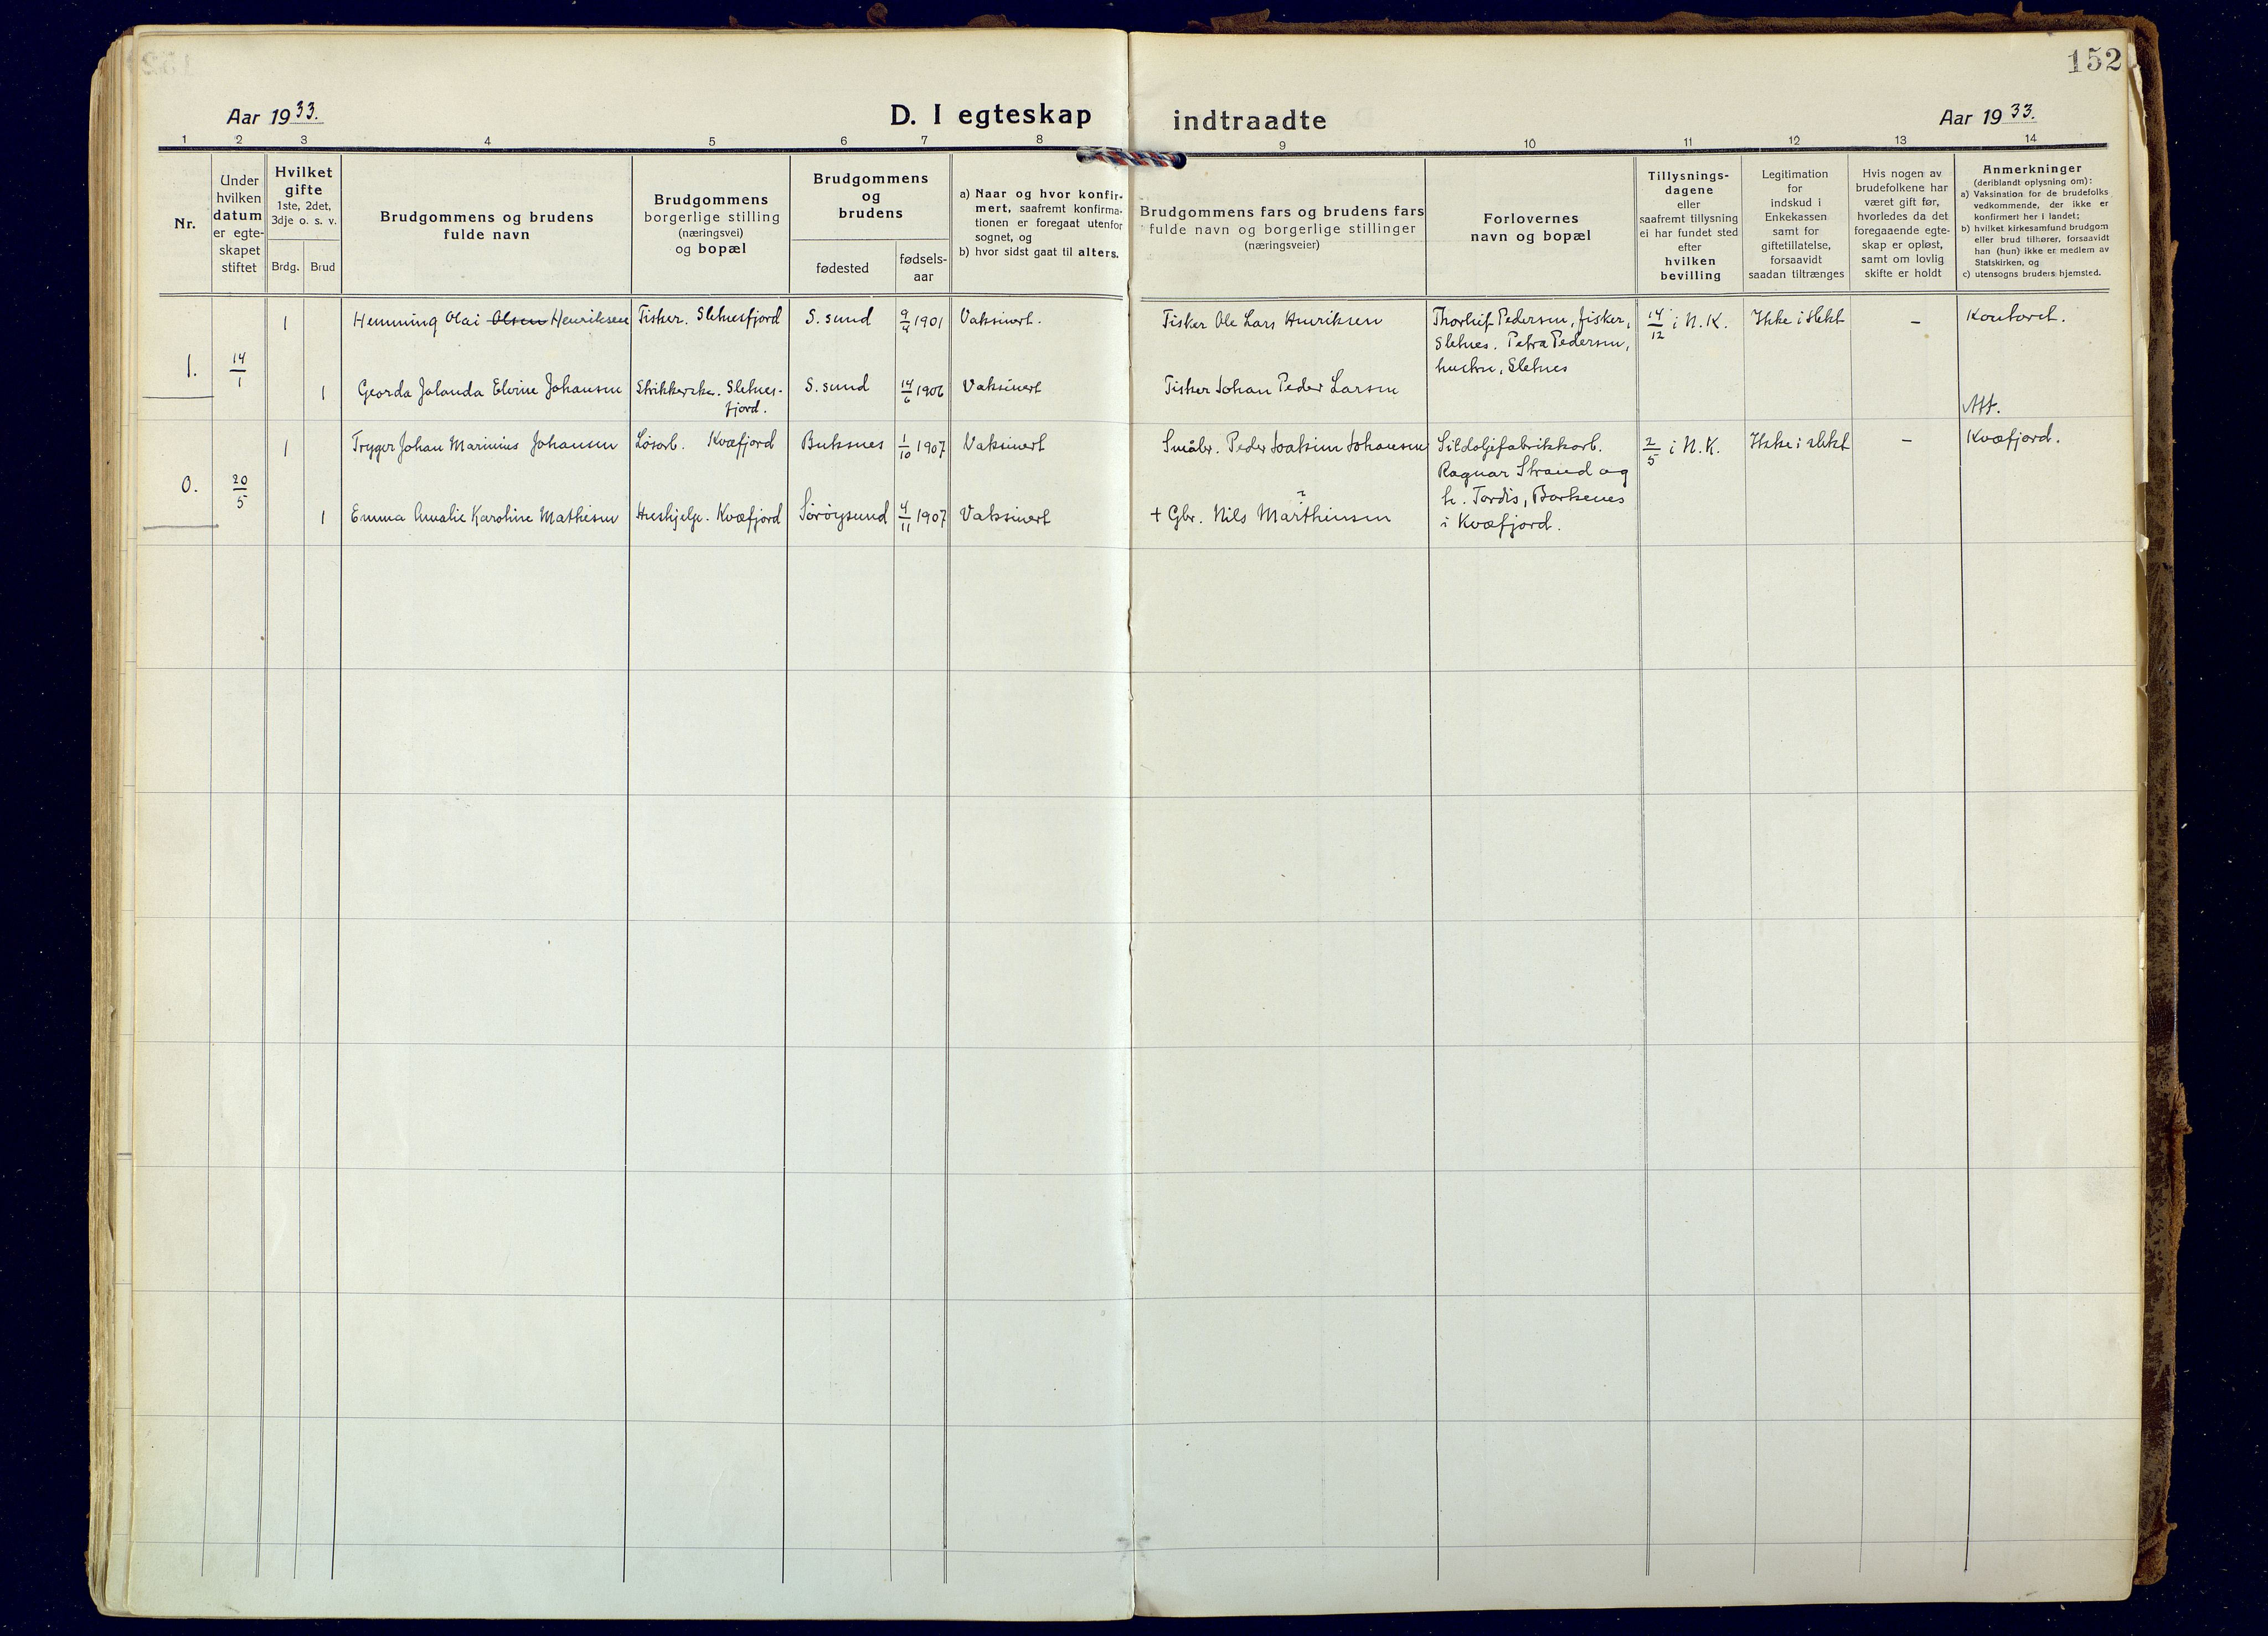 152
Aar 1933.
D. I egteskap indtraadte
Aar 1933.
1 2 3 4 5 6 7 8 9 10 11 12 13 14
Nr.
Under
hvilken
datum
er egte-
skapet
stiftet
Hvilket
gifte
1ste, 2det,
3dje o. s. v.
Brdg. Brud
Brudgommens og brudens
fulde navn
Brudgommens
borgerlige stilling
(næringsvei)
og bopæl
Brudgommens
og
brudens
fødested
fødsels-
aar
a) Naar og hvor konfir-
mert, saafremt konfirma-
tionen er foregaat utenfor
sognet, og
b) hvor sidst gaat til alters.
Brudgommens fars og brudens fars
fulde navn og borgerlige stillinger
(næringsveier)
Forlovernes
navn og bopæl
Tillysnings-
dagene
eller
saafremt tillysning
ei har fundet sted
efter
hvilken
bevilling
Legitimation
for
indskud i
Enkekassen
samt for
giftetillatelse,
forsaavidt
saadan tiltrænges
Hvis nogen av
brudefolkene har
været gift før,
hvorledes da det
foregaaende egte-
skap er opløst,
samt om lovlig
skifte er holdt
Anmerkninger
(deriblandt oplysning om):
a) Vaksination for de brudefolks
vedkommende, der ikke er
konfirmert her i landet;
b) hvilket kirkesamfund brudgom
eller brud tilhører, forsaavidt
han (hun) ikke er medlem av
Statskirken, og
c) utensogns bruders hjemsted.
1.
14/1
1
Henning Olai Olsen Henriksen
Fisker. Sletnesfjord
S. sund
9/4 1901
Vaksinert.
Fisker Ole Lars Henriksen
Thorleif Pedersen, fisker,
Sletnes. Petra Pedersen,
hustru, Sletnes
14/12 i N.K.
Ikke i slekt
–
Kontoret.
1
Georda Jolanda Elvine Johansen
Strikkerske. Sletnes-
fjord.
S. sund
14/6 1906
Vaksinert
Fisker Johan Peder Larsen
Att.
0.
20/5
1
Tryger Johan Marinius Johansen
Løsarb. Kvæfjord
Buksnes
1/10 1907
Vaksinert
Småbr. Peder Joakim Johansen
Sildoljefabrikkarb.
Ragnar Strand og
h. Tordis, Borkenes
i Kvæfjord.
2/5 i N.K.
Ikke i slekt
–
Kvæfjord.
1
Emma Amalie Karoline Mathisen
Hushjelp. Kvæfjord
Sørøysund
4/11 1907
Vaksinert
?
+ Gbr. Nils Marthinsen